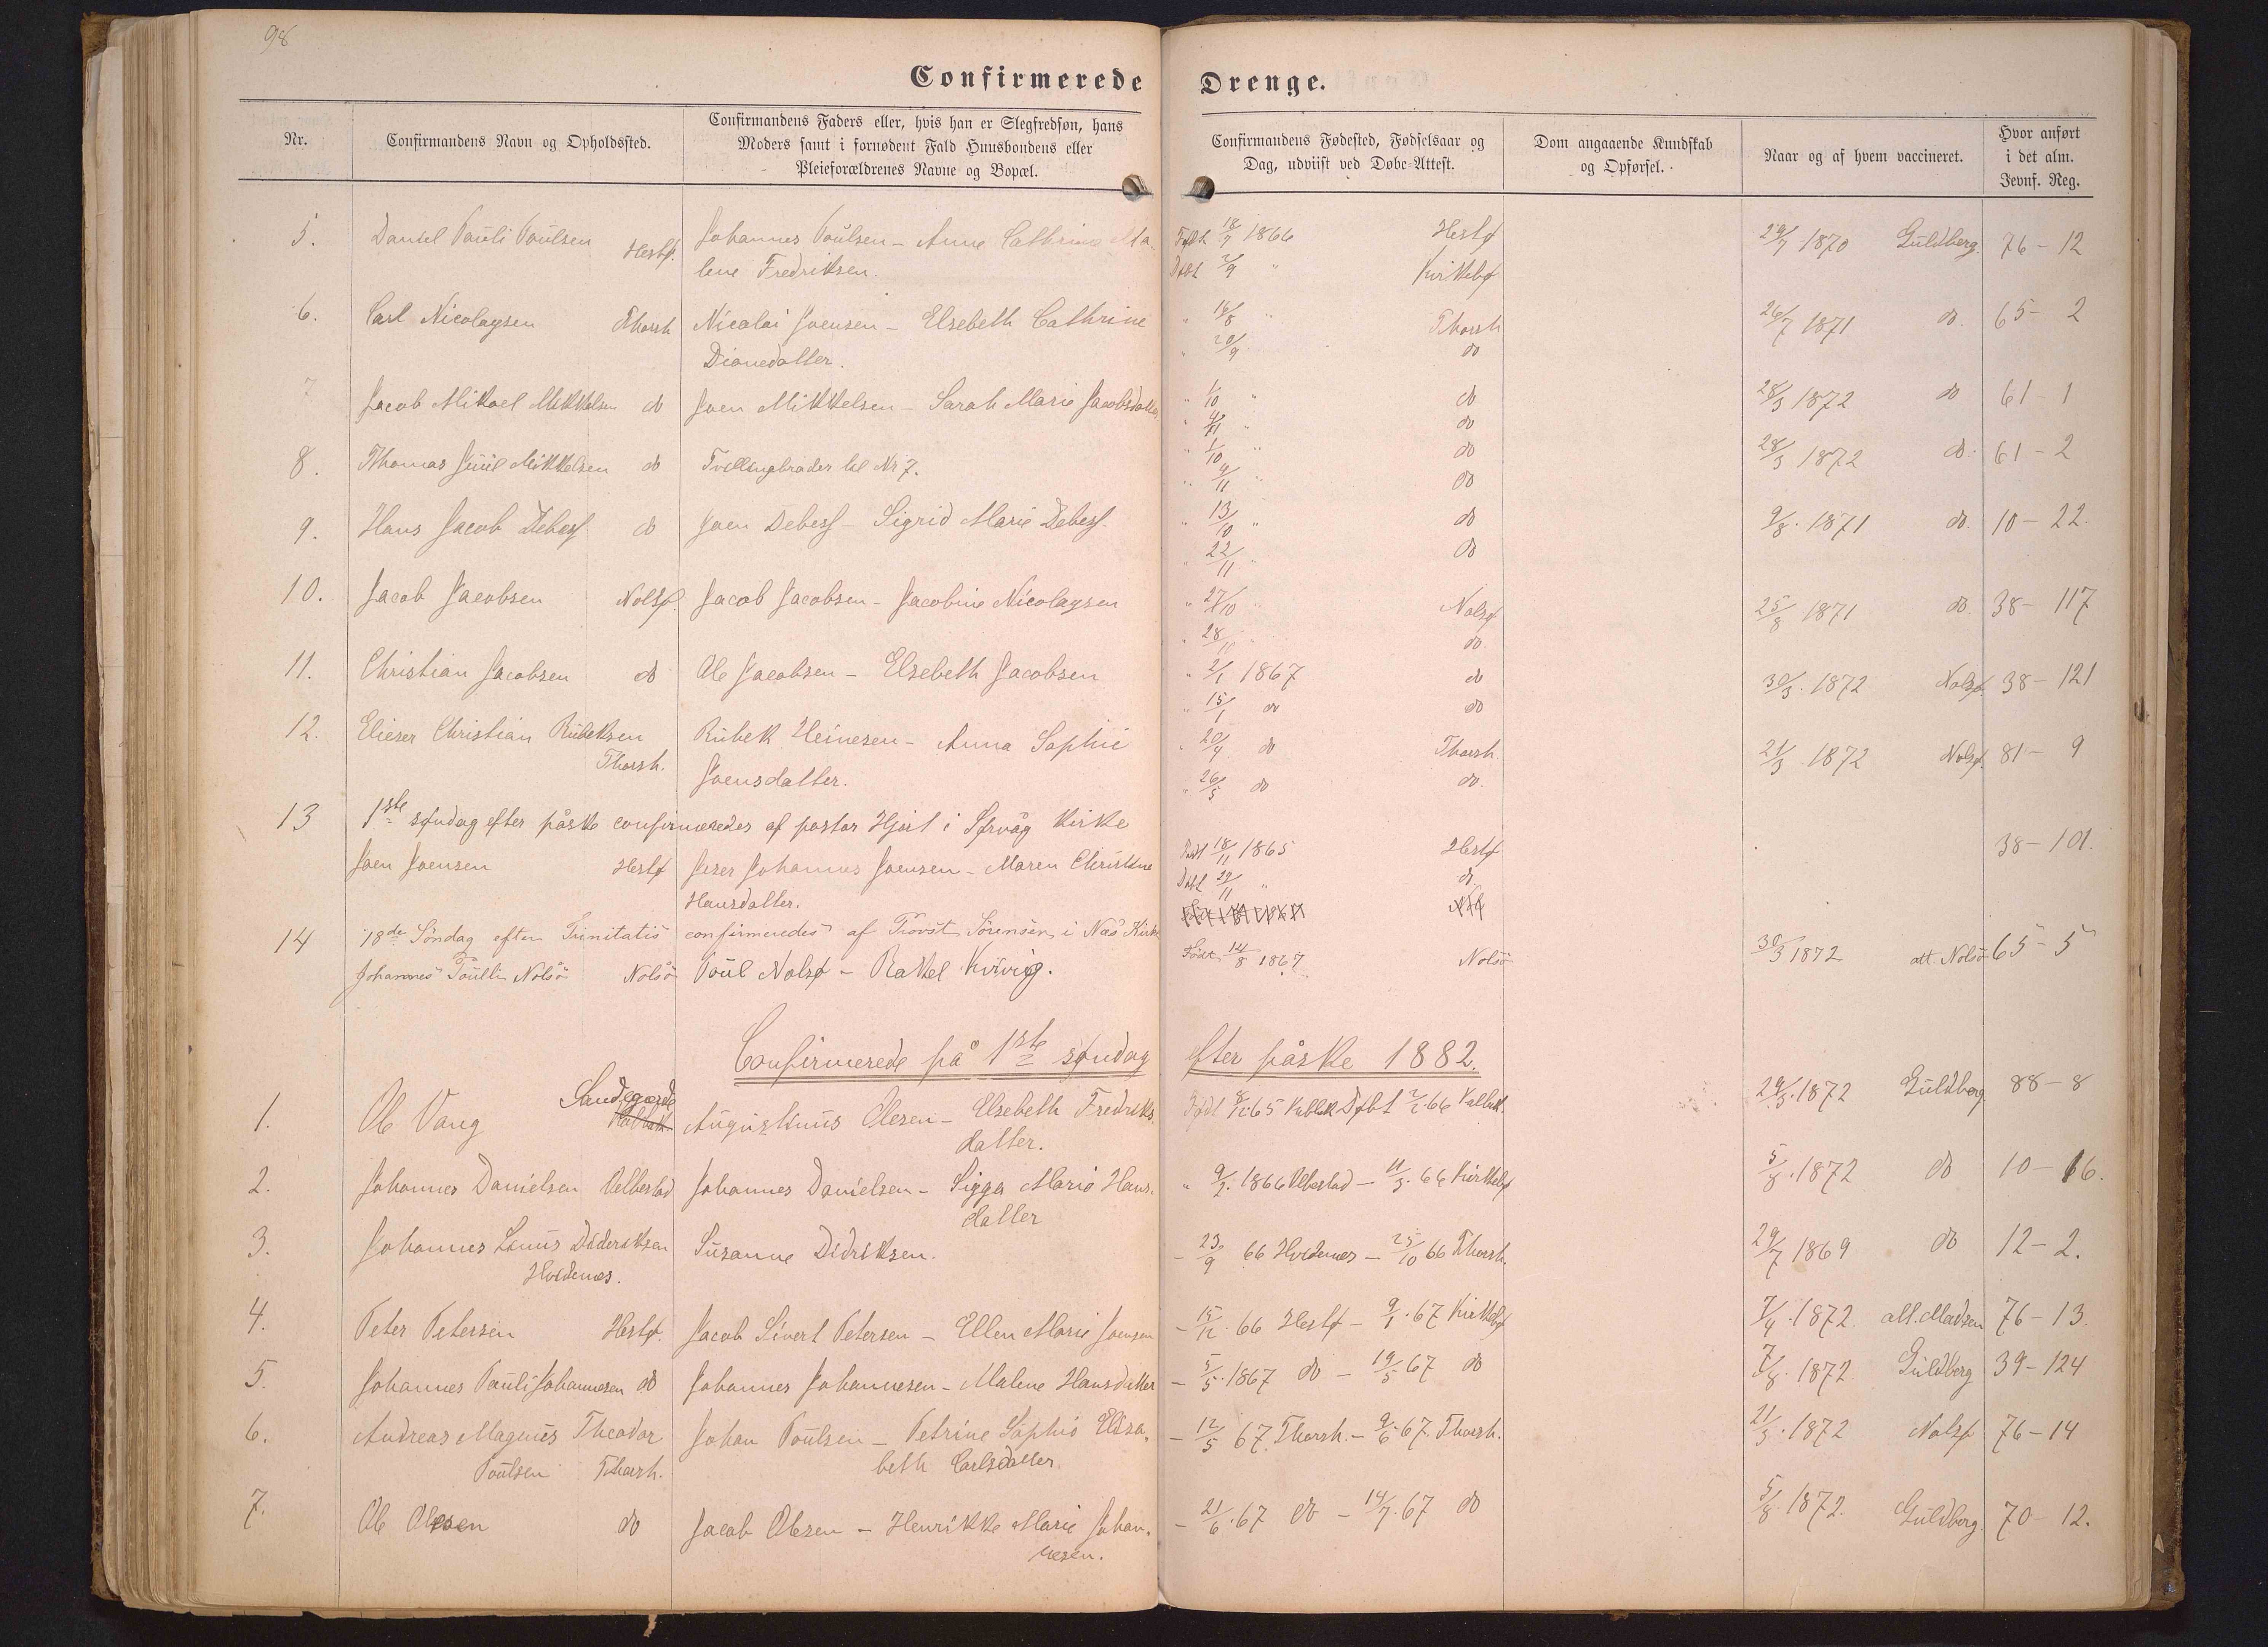 98
Confirmerede Drenge.
Nr.
Confirmandens Navn og Opholdssted.
Confirmandens Faders eller, hvis han er Slegfredsøn, hans
Moders samt i fornødent Fald Huusbondens eller
Pleieforældrenes Navne og Bopæl.
Confirmandens Fødested, Fødselsaar og
Dag, udviist ved Døbe-Attest.
Dom angaaende Kundskab
og Opførsel.
Naar og af hvem vaccineret.
Hvor anført
i det alm.
Jevnf. Reg.
5. Daniel Pauli Poulsen Hestø. Johannes Poulsen - Anne Cathrine Ma- Født 18/7 1866 Hestø 29/7 1870 Guldberg. 76 - 12
lene Fredriksen. Døbt 2/9 " Kirkebø
6. Carl Nicolaysen Thorsh Nicolai Joensen - Elsebeth Cathrine " 16/8 " Thorsh 26/7 1871 do. 65 - 2
Dianedatter. " 20/9 do
7 Jacob Mikael Mikkelsen do Joen Mikkelsen - Sarah Marie Jacobsdatter " 1/10 " do 28/3 1872 do 61 - 1
" 4/11 " do
8. Thomas Juul Mikkelsen do Tvillingbroder til Nr 7. " 1/10 " do 28/3 1872 do. 61 - 2
" 4/11 " do
9. Hans Jacob Debess do Joen Debess - Sigrid Marie Debess " 13/10 " do 9/8. 1871 do. 10 - 22.
" 22/11 " do
10. Jacob Jacobsen Nolsø. Jacob Jacobsen - Jacobine Nicolaysen " 27/10 " Nolsø 25/8 1871 do. 38 - 117
" 28/10 " do.
11. Christian Jacobsen do Ole Jacobsen - Elsebeth Jacobsen " 2/1 1867 do 30/3. 1872 Nolsø. 38 - 121
" 15/1 do do
12. Elieser Christian Rubeksen Rubek Heinesen - Anna Sophie " 20/4 do Thorsh 21/3 1872 Nolsø. 81 - 9
Thorsh. Joensdatter. " 26/5 do do.
13 1ste søndag efter påske confirmeredes af pastor Hjort i Sørvåg Kirke
Joen Joensen Hestø Johannes Joensen - Maren Christine Født 18/11 1865 Hestø 38 - 101.
Hansdatter. Døbt 29/11 " do.
14 18de Söndag efter Trinitatis confirmeredes af Provst Sörensen i Næs Kirke
Johannes Poulli Nolsö Nolsö Poul Nolsø - Rakel Kvivig. Födt 14/8 1867 Nolsö 30/3 1872 att. Nolsö 65 - 5
Confirmerede på 1ste søndag efter påske 1882.
1. Ole Vang Sandegærde Augustinus Olesen - Elsebeth Fredriks- Født 8/12 65 Døbt 66 29/3. 1872 Guldberg 88 - 8
datter.
2. Johannes Danielsen Velbestad Johannes Danielsen - Sigga Marie Hans- " 9/2. 1866 Velbestad - 11/3. 66 Kirkebø 5/8. 1872 do 10 - 16.
datter
3. Johannes Dideriksen Susanne Didriksen. - 23/9 66 Hvidenæs - 25/10 66 Thorsh. 29/7 1869 do 12 - 2.
Hvidenæs.
4. Peter Petersen Hestø. Jacob Sivert Petersen - Ellen Marie Joensen - 15/12. 66 Hestø - 9/1. 67 Kirkebø 7/4. 1872. att. Madsen 76 - 13.
5. Johannes Pauli Johannesen do Johannes Johannesen - Malene Hansdatter - 5/5. 1867 do - 19/5 67 do 7/8. 1872. Guldberg 39 - 124
6. Andreas Magnus Theodor Johan Poulsen - Petrine Sophie Elisa- - 12/5 67. Thorsh. - 9/6 67. Thorsh. 21/3. 1872 Nolsø 76 - 14
Poulsen Thorsh. beth Carlsdatter
7. Ole Olesen do Jacob Olesen - Henrikke Marie Johan- - 21/6. 67 do - 14/7. 67 do 5/8. 1872. Guldberg. 70 - 12.
nesen.